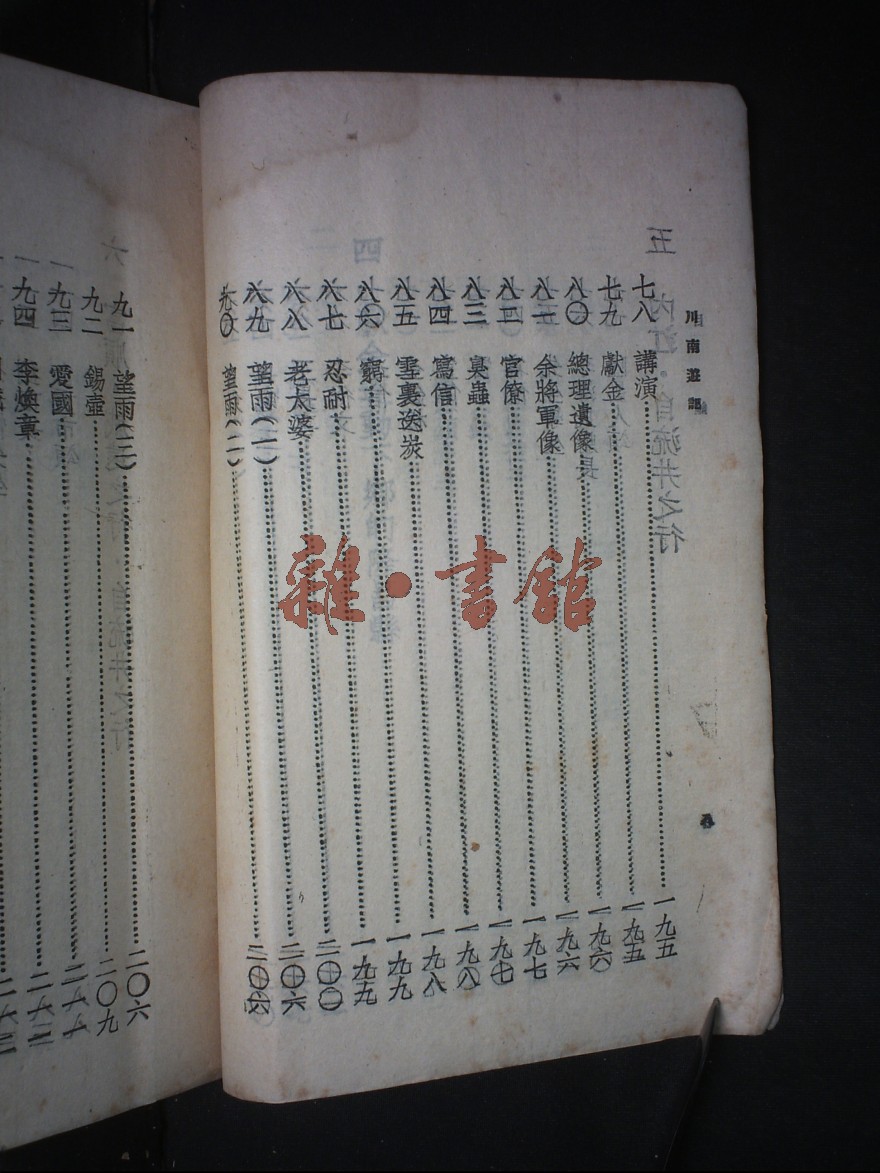 川南遊記
七八 講演 一九五
七九 獻金 一九五
八〇 總理遺像 一九六
八一 余將軍像 一九六
八二 官僚 一九七
八三 臭蟲 一九七
八四 寫信 一九八
八五 雪裏送炭 一九八
八六 窮 一九九
八七 忍耐 一九九
八八 老太婆 二〇〇
八九 望雨(一) 二〇六
九〇 望雨(二)
九一 望雨(三) 二〇六
九二 錫壺 二〇九
九三 愛國
九四 李煥章
雜·書館